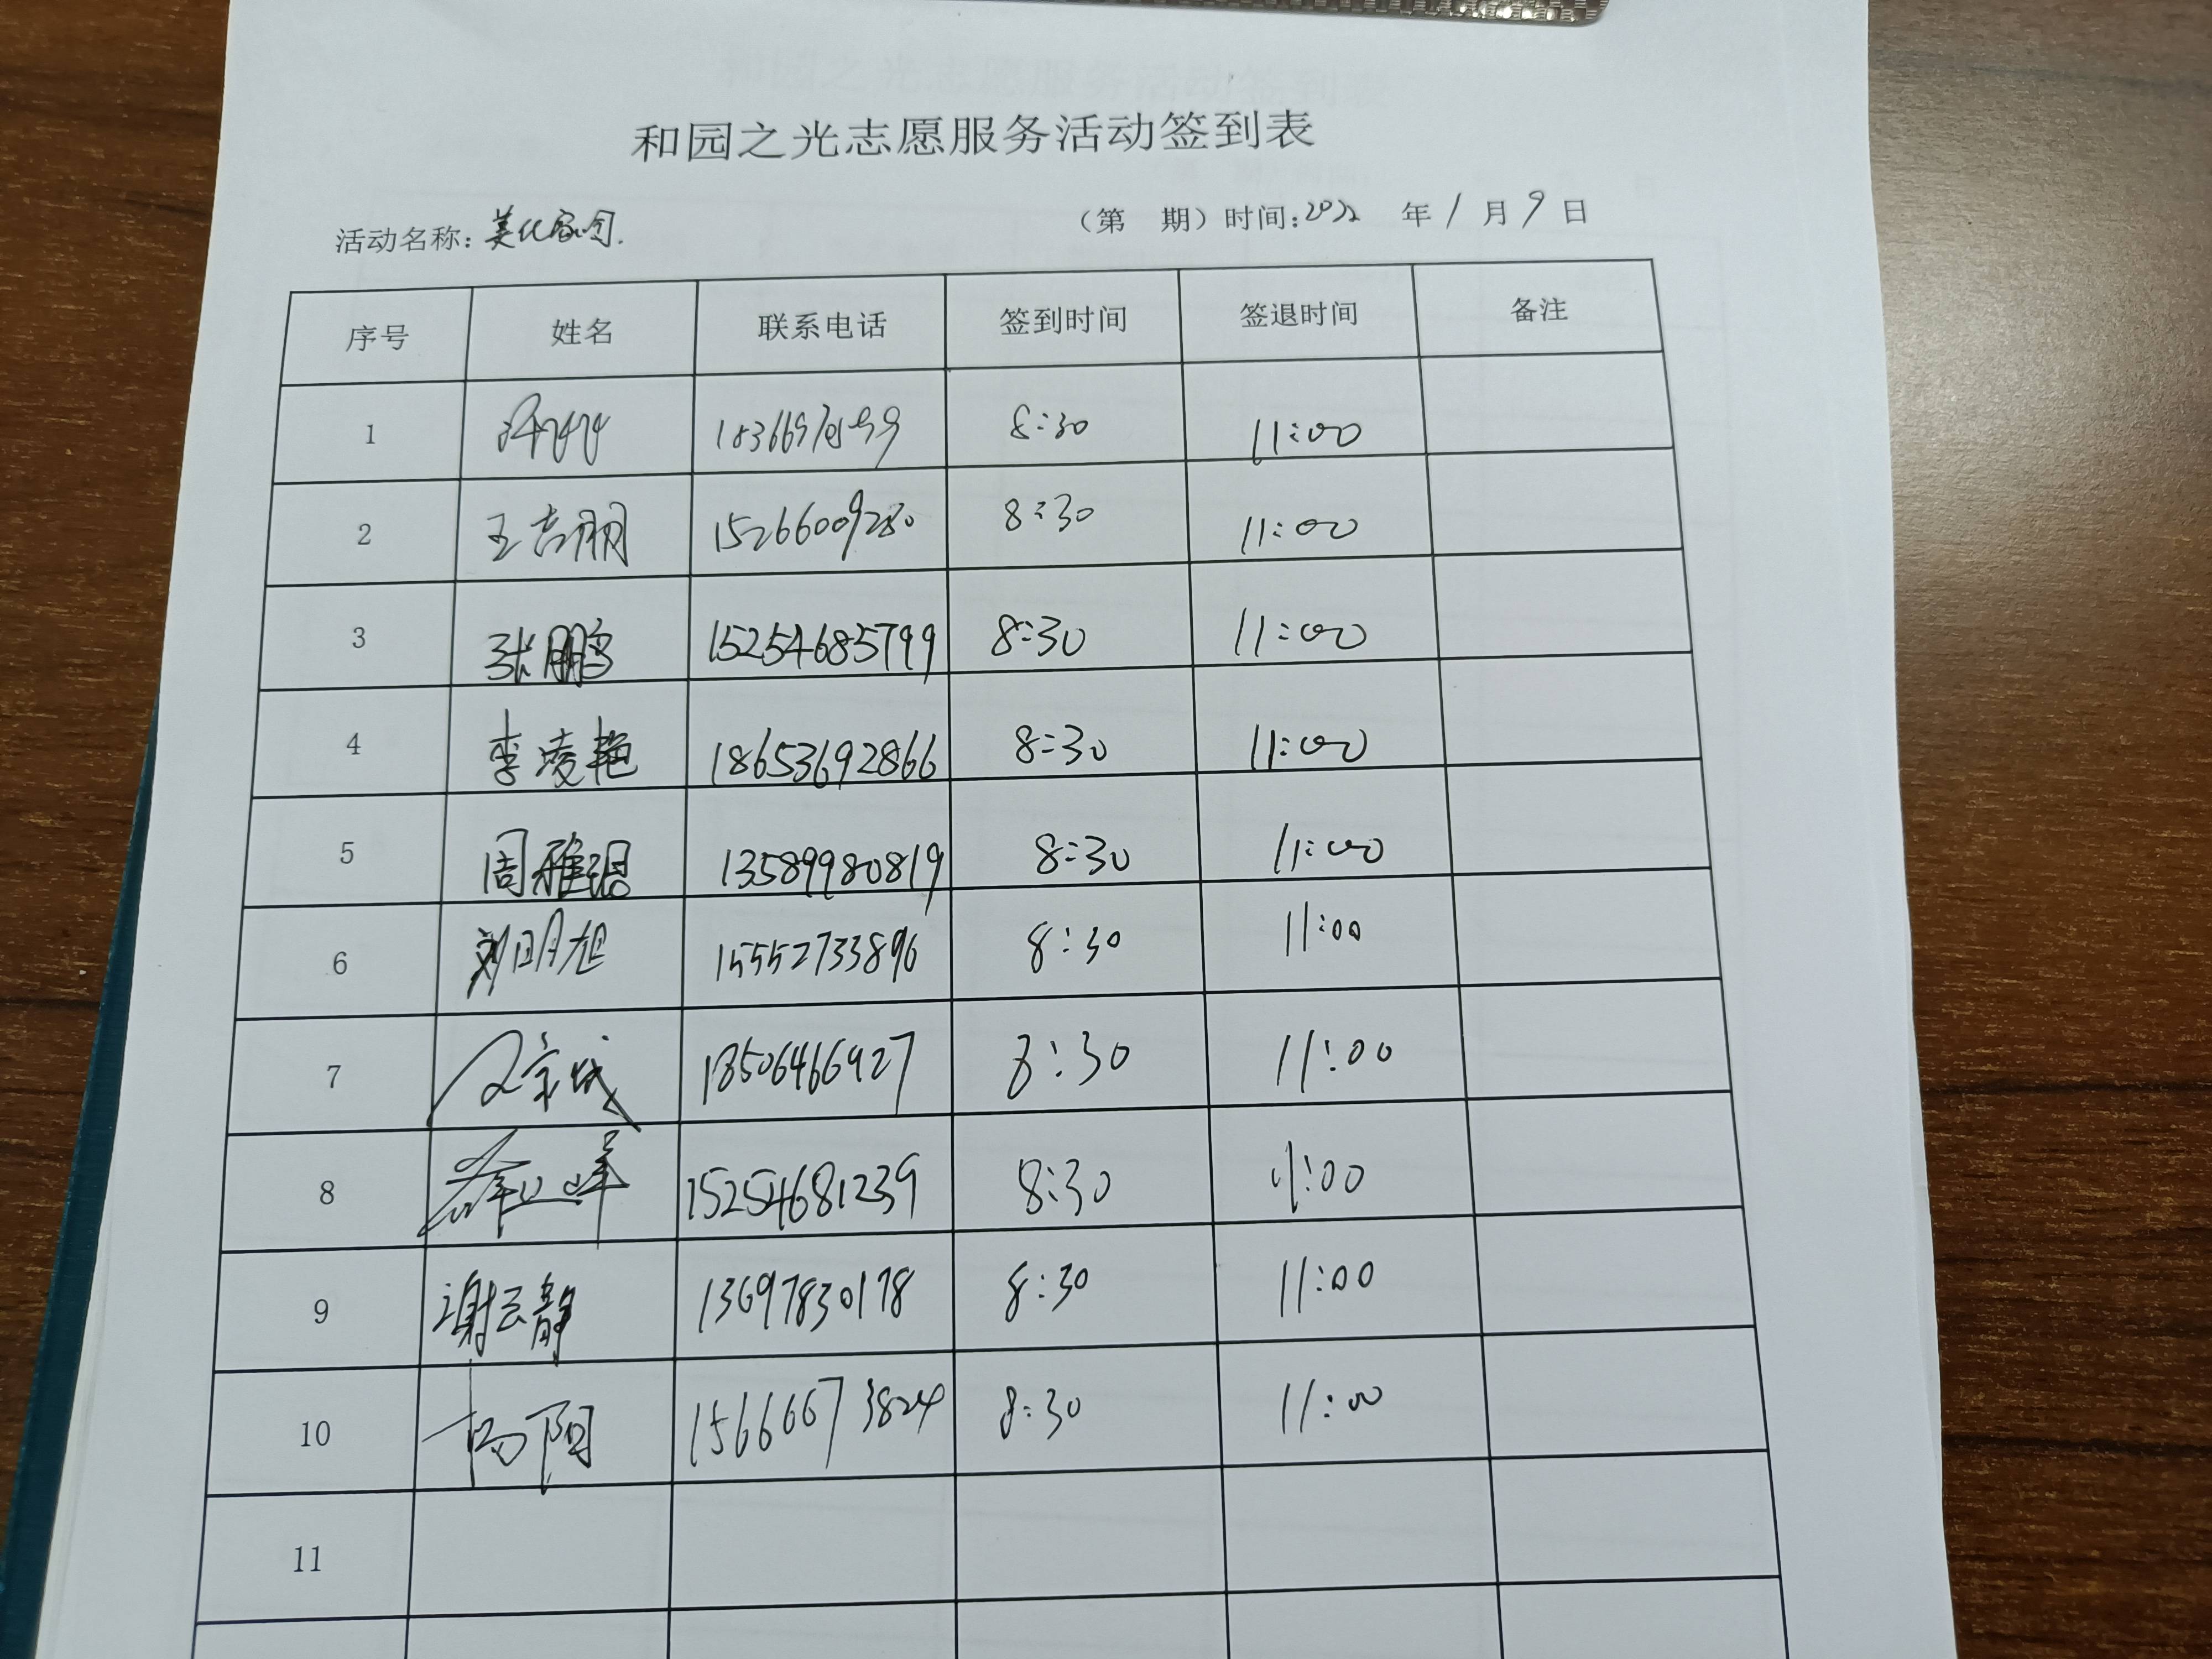 和园之光志愿服务活动签到表
活动名称：美化家园. （第 期）时间：2022 年 1 月 9 日
序号 姓名 联系电话 签到时间 签退时间 备注
1 8:30 11:00
2 王吉朋 15266009280 8:30 11:00
3 张鹏 15254685799 8:30 11:00
4 李凌艳 18653692866 8:30 11:00
5 周雅琨 13589980819 8:30 11:00
6 刘明旭 15552733896 8:30 11:00
7 18506466927 8:30 11:00
8 15254681239 8:30 11:00
9 谢云静 13697830178 8:30 11:00
10 杨阳 15666673824 8:30 11:00
11